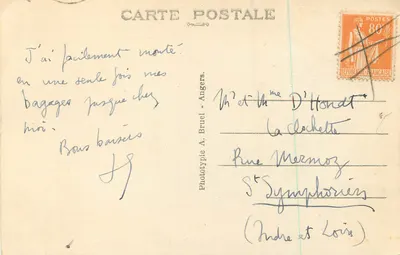 CARTE POSTALE
POSTES
J'ai facilement monté
en une seule fois mes
bagages jusque chez
moi.
Bons baisers
Phototypie A. Bruel - Angers.
Mr et Mme D'Hondt
La Clochette
Rue Mermoz
St Symphorien
(Indre et Loire)